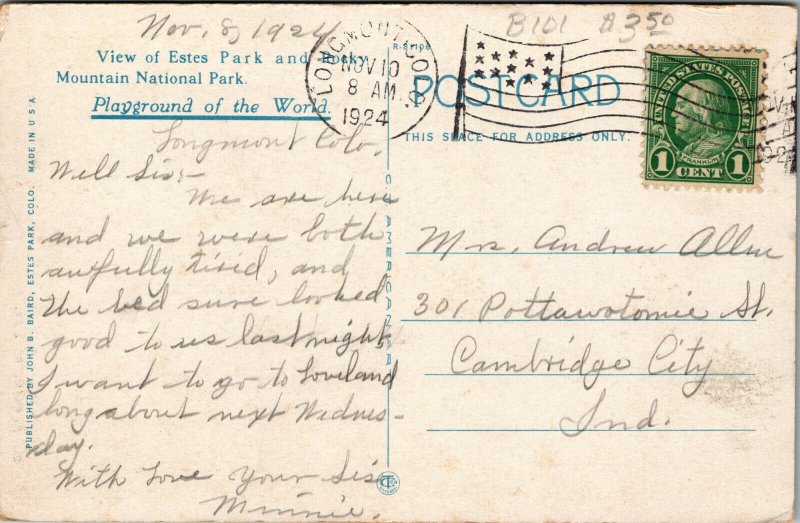 Nov. 8, 1924
B101 $3.50
View of Estes Park and Rocky
Mountain National Park.
Playground of the World.
LONGMONT, COLO.
NOV 10
8 AM
1924
POST CARD
THIS SPACE FOR ADDRESS ONLY.
UNITED STATES POSTAGE
FRANKLIN
1 CENT 1
Longmont Colo.
Well Sis:-
We are here
and we were both
awfully tired, and
the bed sure looked
good to us last night,
I want to go to Loveland
long about next Wednes-
day.
With Love your Sis
Minnie.
Mrs. Andrew Allen
301 Pottawotomie St.
Cambridge City
Ind.
PUBLISHED BY JOHN B. BAIRD, ESTES PARK, COLO. MADE IN U S A